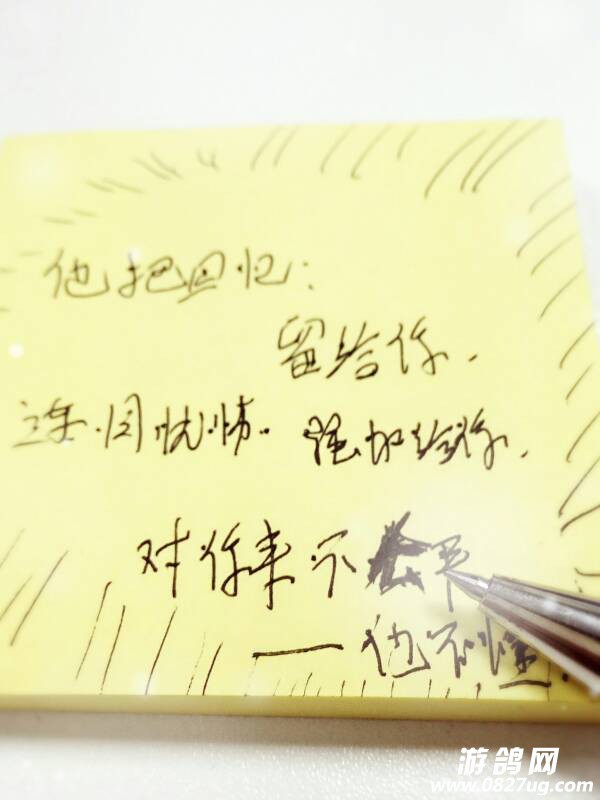 他把回忆:
留给你.
连同忧愁. 强加给你.
对你来不公平
——他不懂.
游鸽网
www.0827ug.com